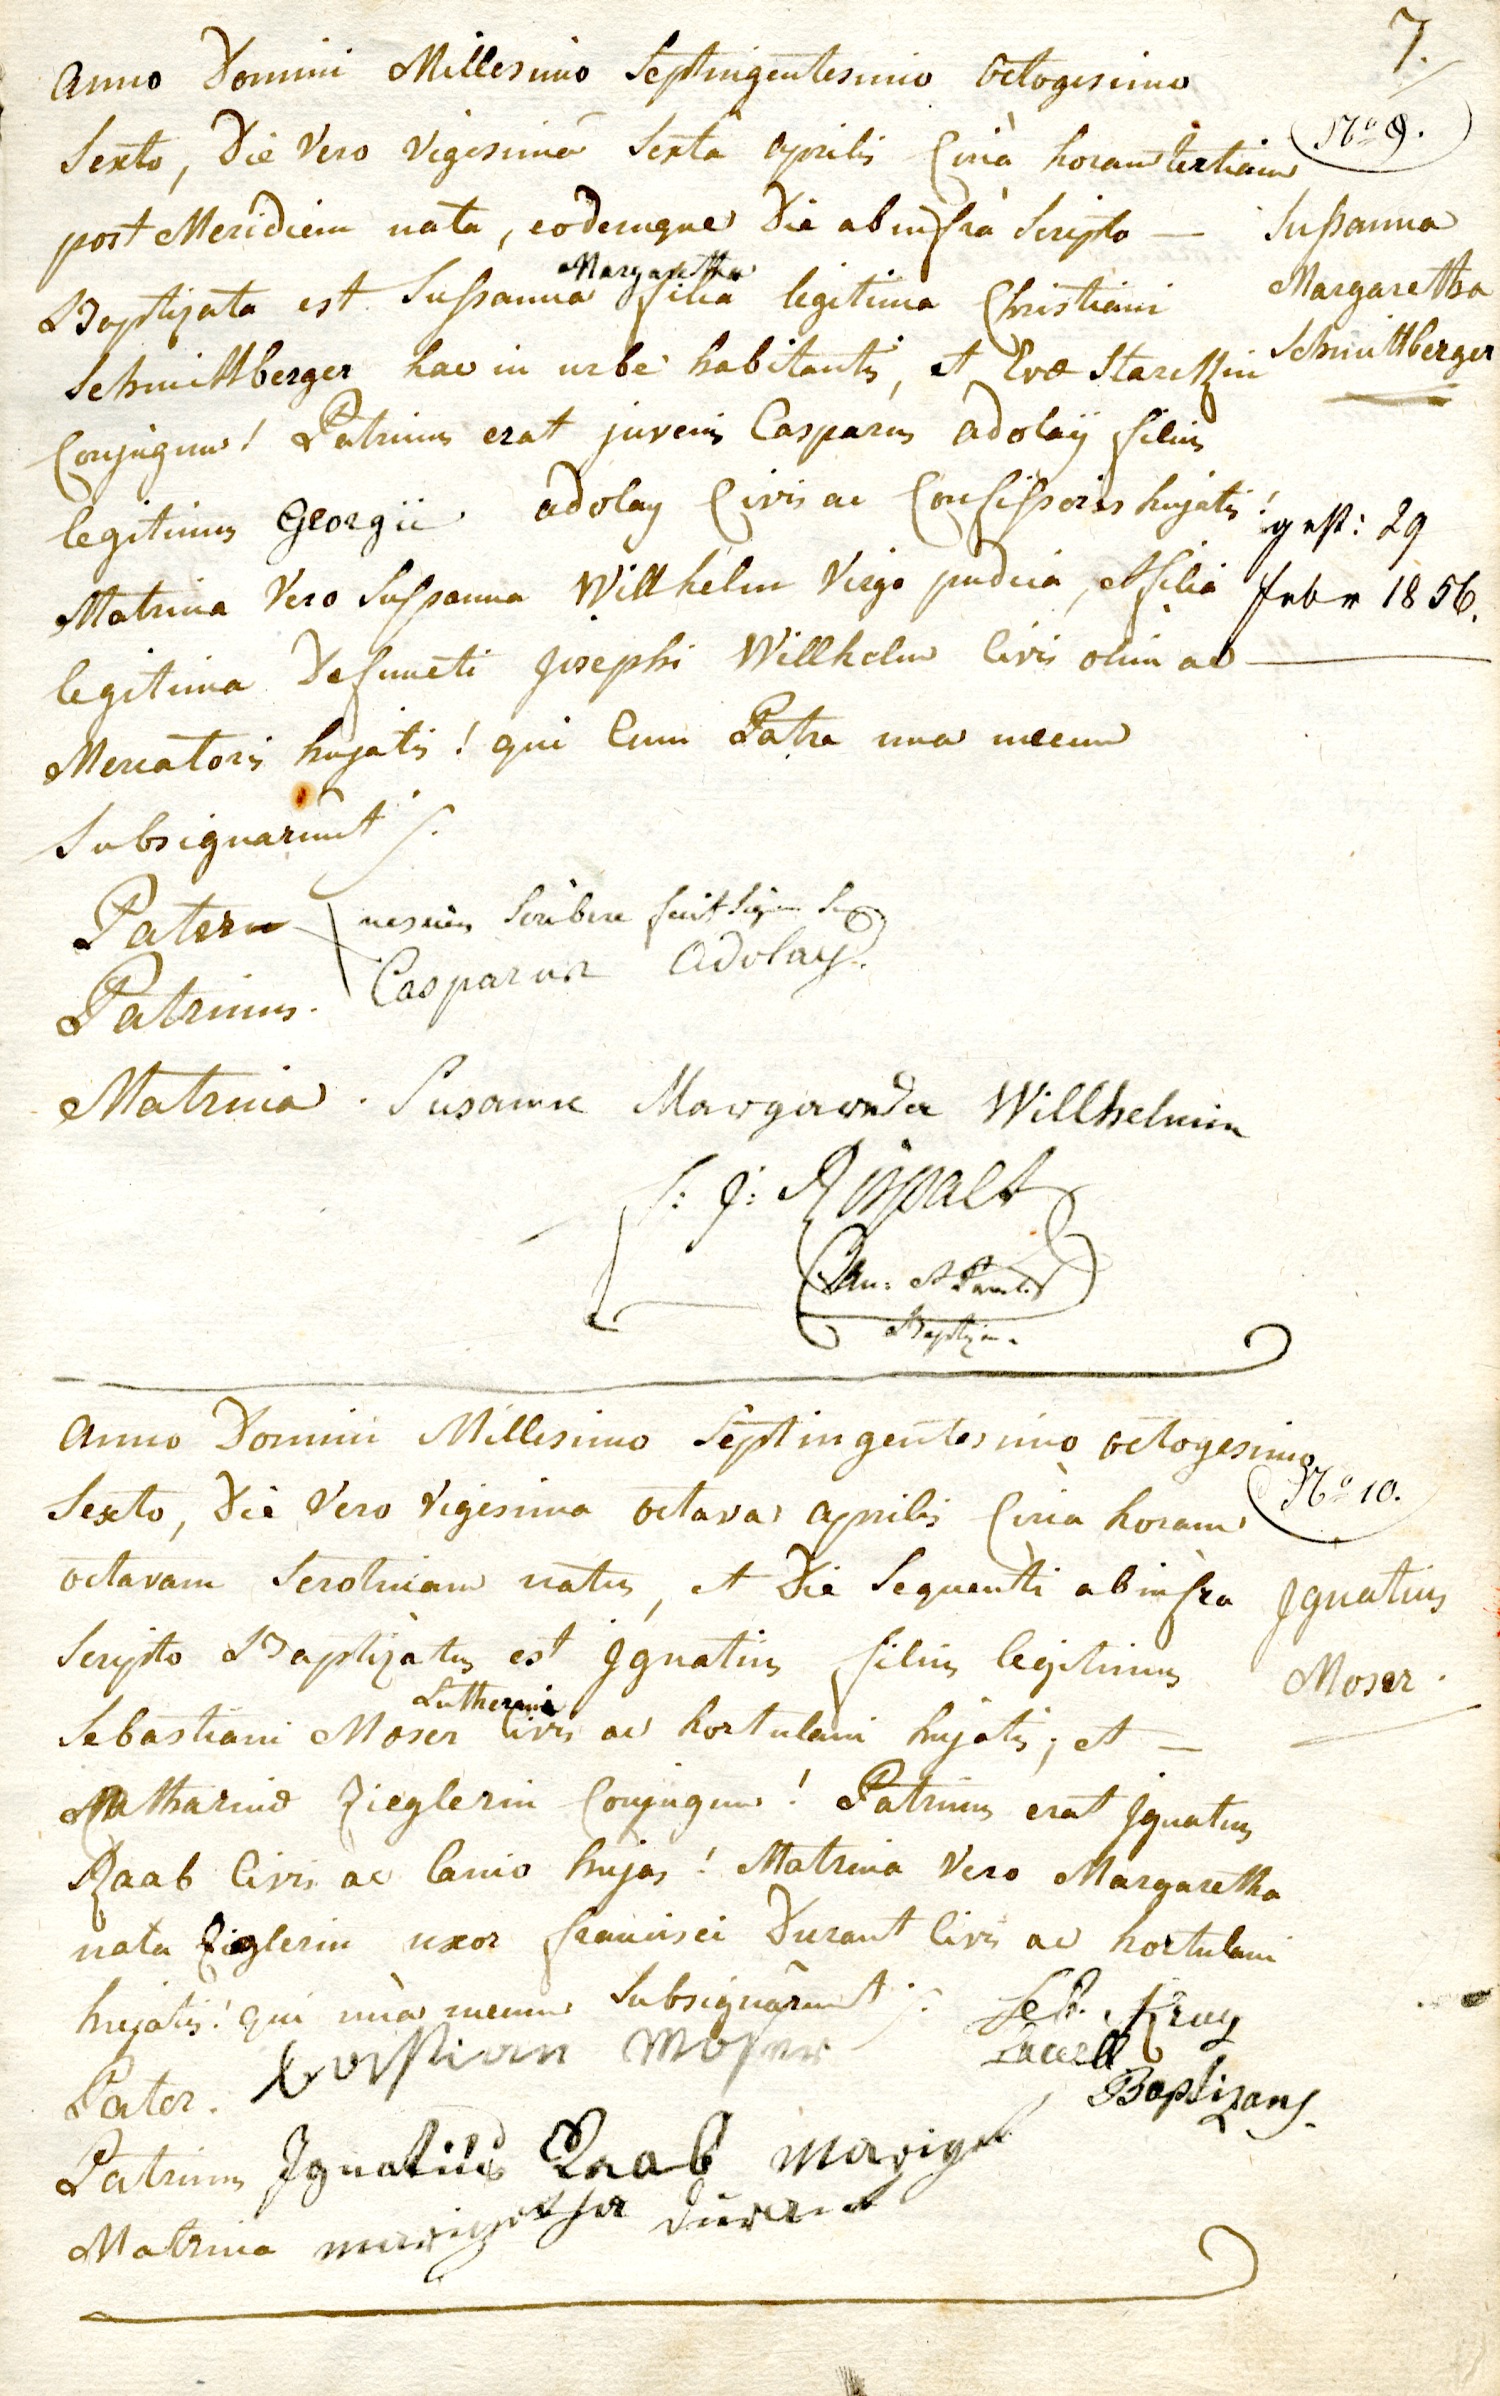 7.
Anno Domini Millesimo Septingentesimo Octogesimo
Sexto, Die Vero Vigesimâ Sextâ Aprilis Circà horam tertiam
No 9.
post Meridiem nata, eodemque Die ab infrà Scripto —
Sußanna
Margaretha
Margaretha
Baptizata est Sußanna filia legitima Christiani
Schmittberger hac in urbe habitantis, et Evæ Staretzin
Schmittberger
Conjugum! Patrinus erat juvenis Casparus Adolaÿ filius
legitimus Georgii Adolay Civis ac Consißoris hujatis!
gest: 29
Matrina Vero Sußanna Willhelm Virgo pudica, et filia
febr 1856.
legitima Defuncti Josephi Willhelm Civis olim ac
Mercatoris hujatis! qui Cum Patre una mecum
Subsignarunt
Pater nesciens Scribere fecit Signum
Patrinus. Casparus Adolay.
Matrina. Susanne Margareda Willhelmin
Can: et
Baptizans
Anno Domini Millesimo Septingentesimo octogesimo
No 10.
Sexto, Die Vero Vigesima octava Aprilis Circà horam
octavam Serotinam natus, et Die Sequenti ab infra
Ignatius
Scripto Baptizàtus est Ignatius filius legitimus
Moser.
Lutherani
Sebastiani Moser Civis ac hortulani hujatis; et —
Catharinæ Zieglerin Conjugum! Patrinus erat Ignatius
Raab Civis ac Lanio hujas! Matrina Vero Margaretha
nata Zieglerin uxor francisci Durant Civis ac hortulani
hujatis! qui unà mecum Subsignârunt
Seb. Krug
Pater. Bastian Moser
Baptizans.
Patrinus Ignatius Raab
Matrina Durant